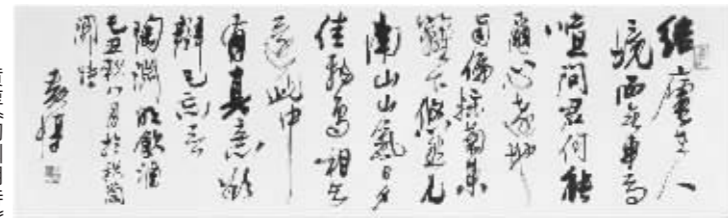 結廬在人
境而無車馬
喧問君何能
爾心遠地
自偏採菊東
籬下悠然見
南山山氣日夕
佳飛鳥相與
還此中
有真意欲
辯已忘言
陶淵明飲酒
己丑秋八月於